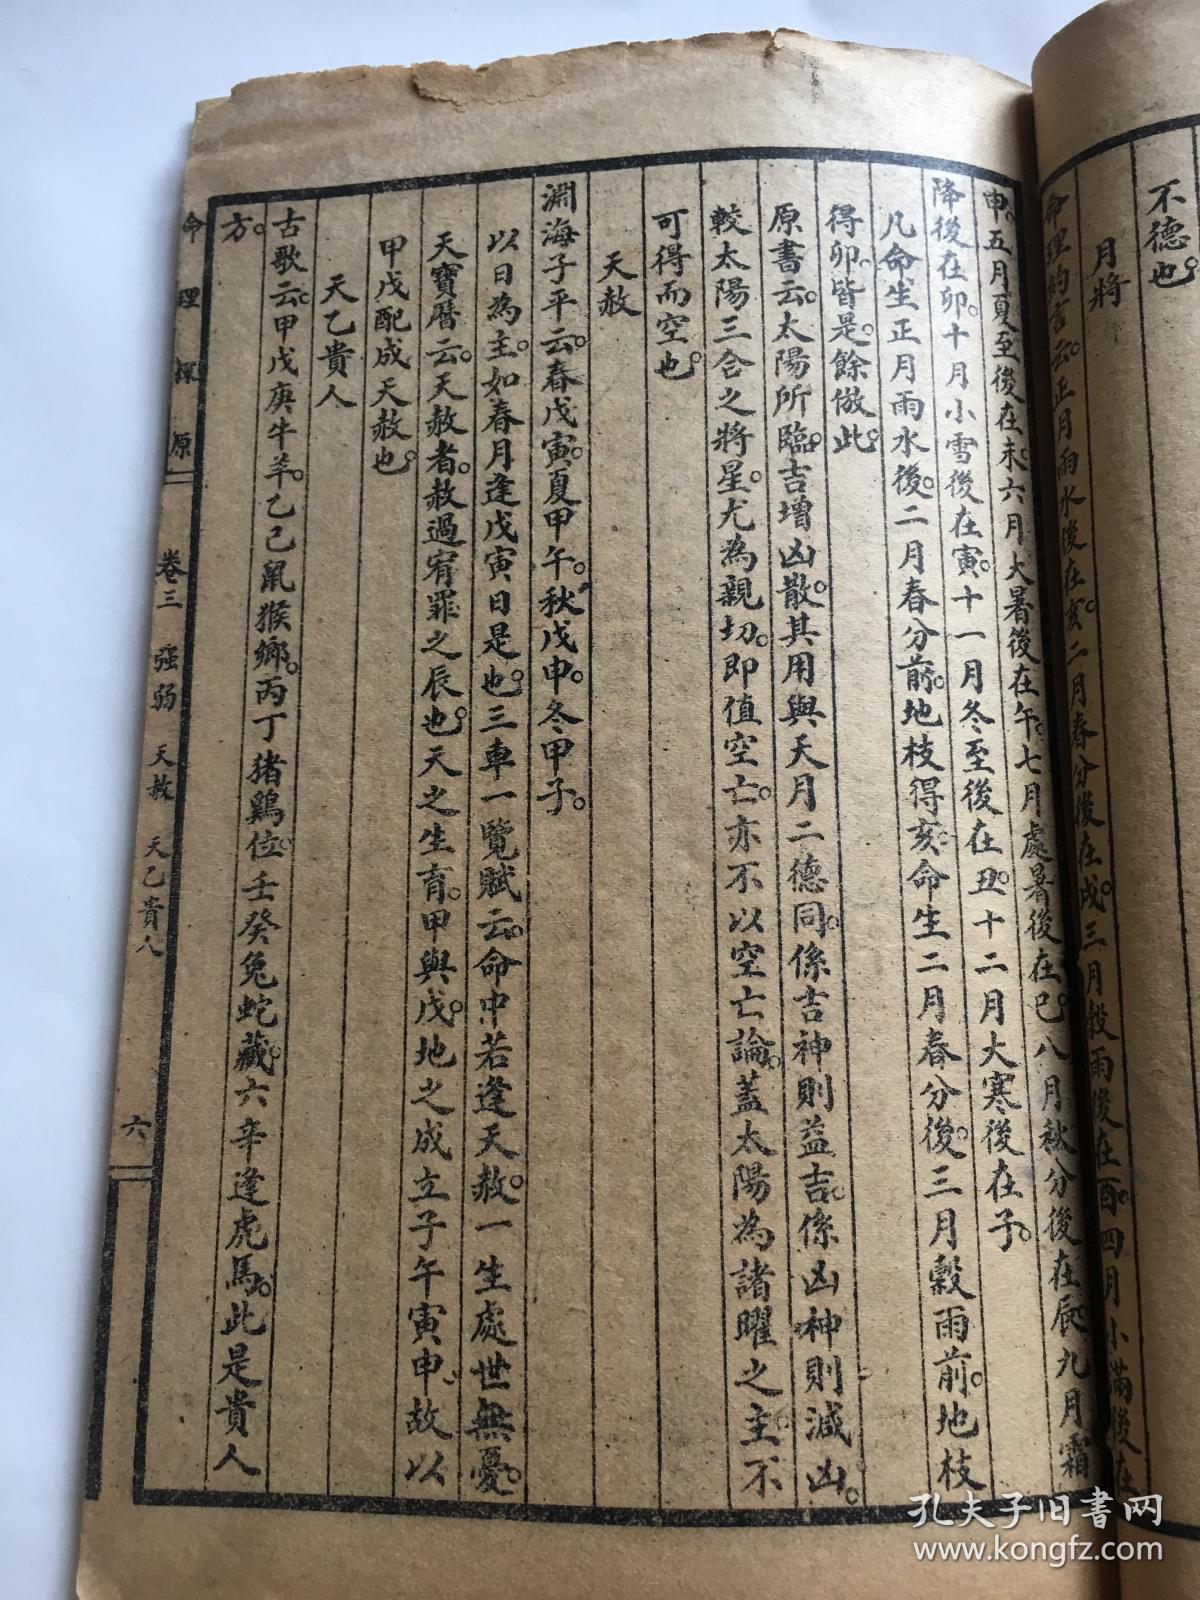 不德也。
月將
命理約言云。正月雨水後在亥。二月春分後在戌。三月穀雨後在酉。四月小滿後在
申。五月夏至後在未。六月大暑後在午。七月處暑後在巳。八月秋分後在辰。九月霜
降後在卯。十月小雪後在寅。十一月冬至後在丑。十二月大寒後在子。
凡命生正月雨水後。二月春分前。地枝得亥。命生二月春分後。三月穀雨前。地枝
得卯。皆是。餘倣此。
原書云。太陽所臨。吉增凶散。其用與天月二德同。係吉神則益吉。係凶神則減凶。
較太陽三合之將星。尤為親切。即值空亡。亦不以空亡論。蓋太陽為諸曜之主。不
可得而空也。
天赦
淵海子平云。春戊寅。夏甲午。秋戊申。冬甲子。
以日為主。如春月逢戊寅日是也。三車一覽賦云。命中若逢天赦。一生處世無憂。
天寶曆云。天赦者。赦過宥罪之辰也。天之生育。甲與戊。地之成立子午寅申。故以
甲戊配成天赦也。
天乙貴人
古歌云。甲戊庚牛羊。乙己鼠猴鄉。丙丁猪鷄位。壬癸兔蛇藏。六辛逢虎馬。此是貴人
方。
命理探原 卷三 强弱 天赦 天乙貴人 六
孔夫子旧书网
www.kongfz.com